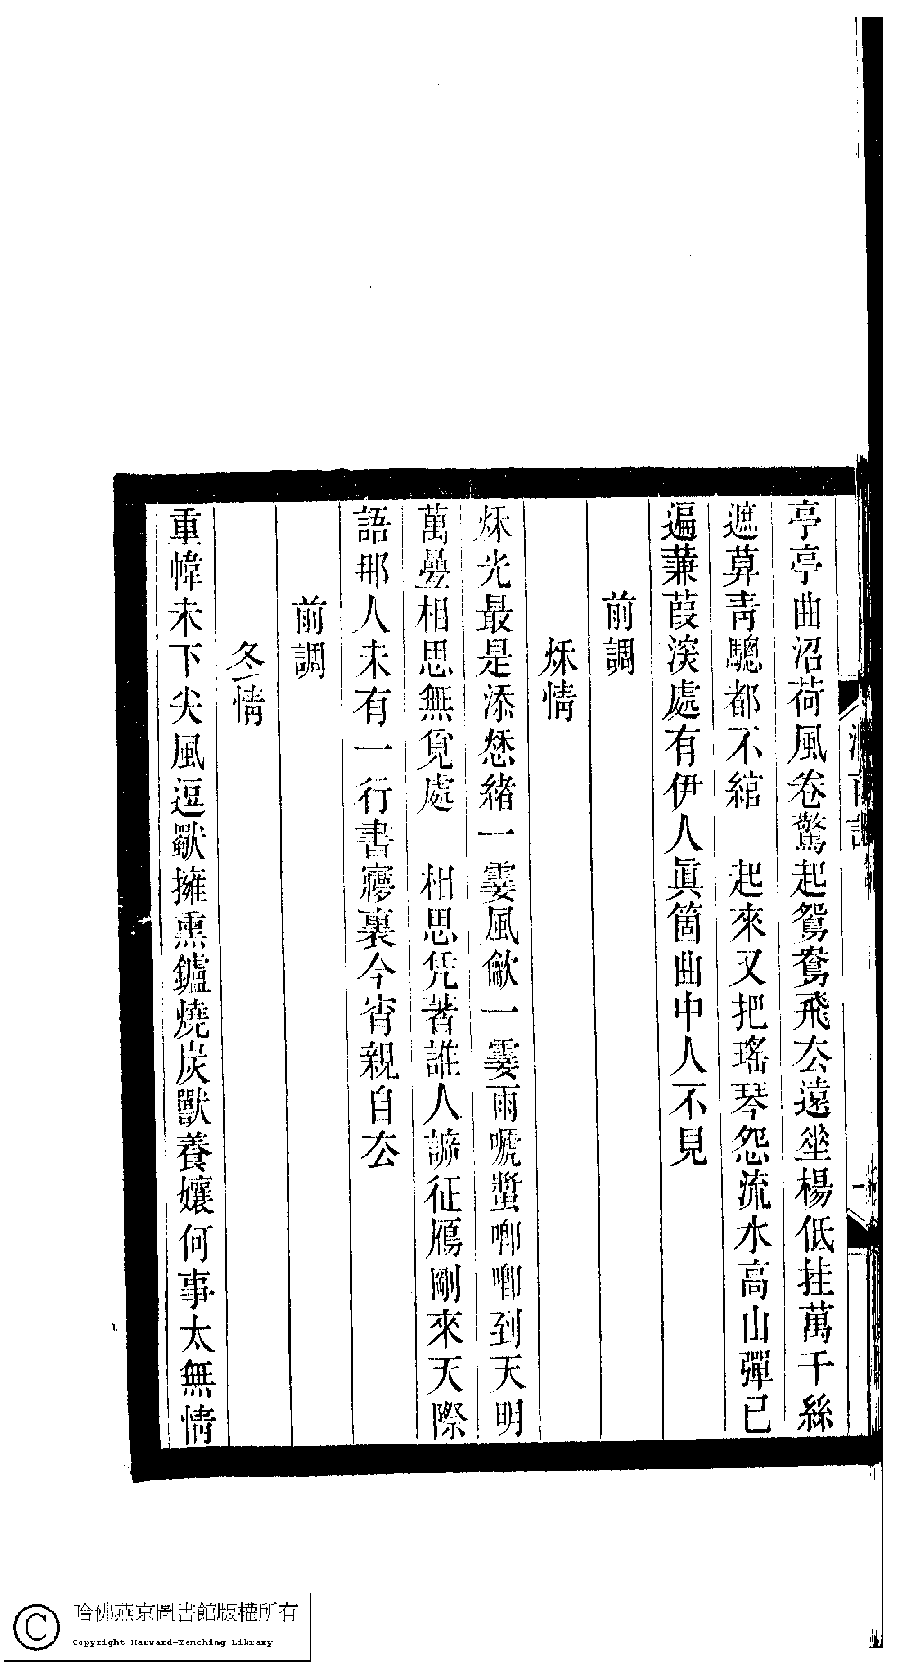 亭亭曲沼荷風卷驚起鴛鴦飛厺遠垂楊低挂萬千絲
遮算青驄都不綰　起來又把瑤琴怨流水高山彈已
遍蒹葭深處有伊人眞箇曲中人不見
前調
秌情
秌光最是添愁緒一霎風僽一霎雨唬螿啣啣到天明
萬疊相思無覓處　相思凭著誰人諦征鴈剛來天際
語那人未有一行書寢裏今宵親自厺
前調
冬情
重幃未下尖風逗歠擁熏鑪燒炭獸養孃何事太無情
哈佛燕京圖書館版權所有
Copyright Harvard-Yenching Library